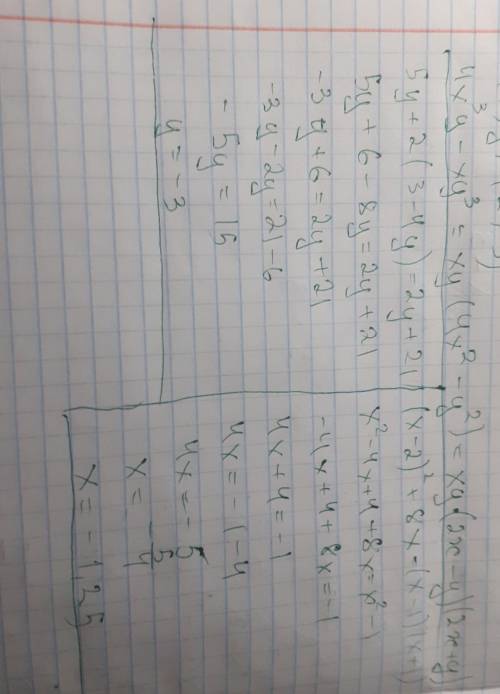 4x³y - xy³ = xy(4x² - y²) = xy(2x - y)(2x + y)
5y + 2(3 - 4y) = 2y + 21
5y + 6 - 8y = 2y + 21
-3y + 6 = 2y + 21
-3y - 2y = 21 - 6
-5y = 15
y = -3
(x-2)² + 8x = (x-1)(x+1)
x² - 4x + 4 + 8x = x² - 1
-4x + 4 + 8x = -1
4x + 4 = -1
4x = -1 - 4
4x = -5
x = -5/4
x = -1,25